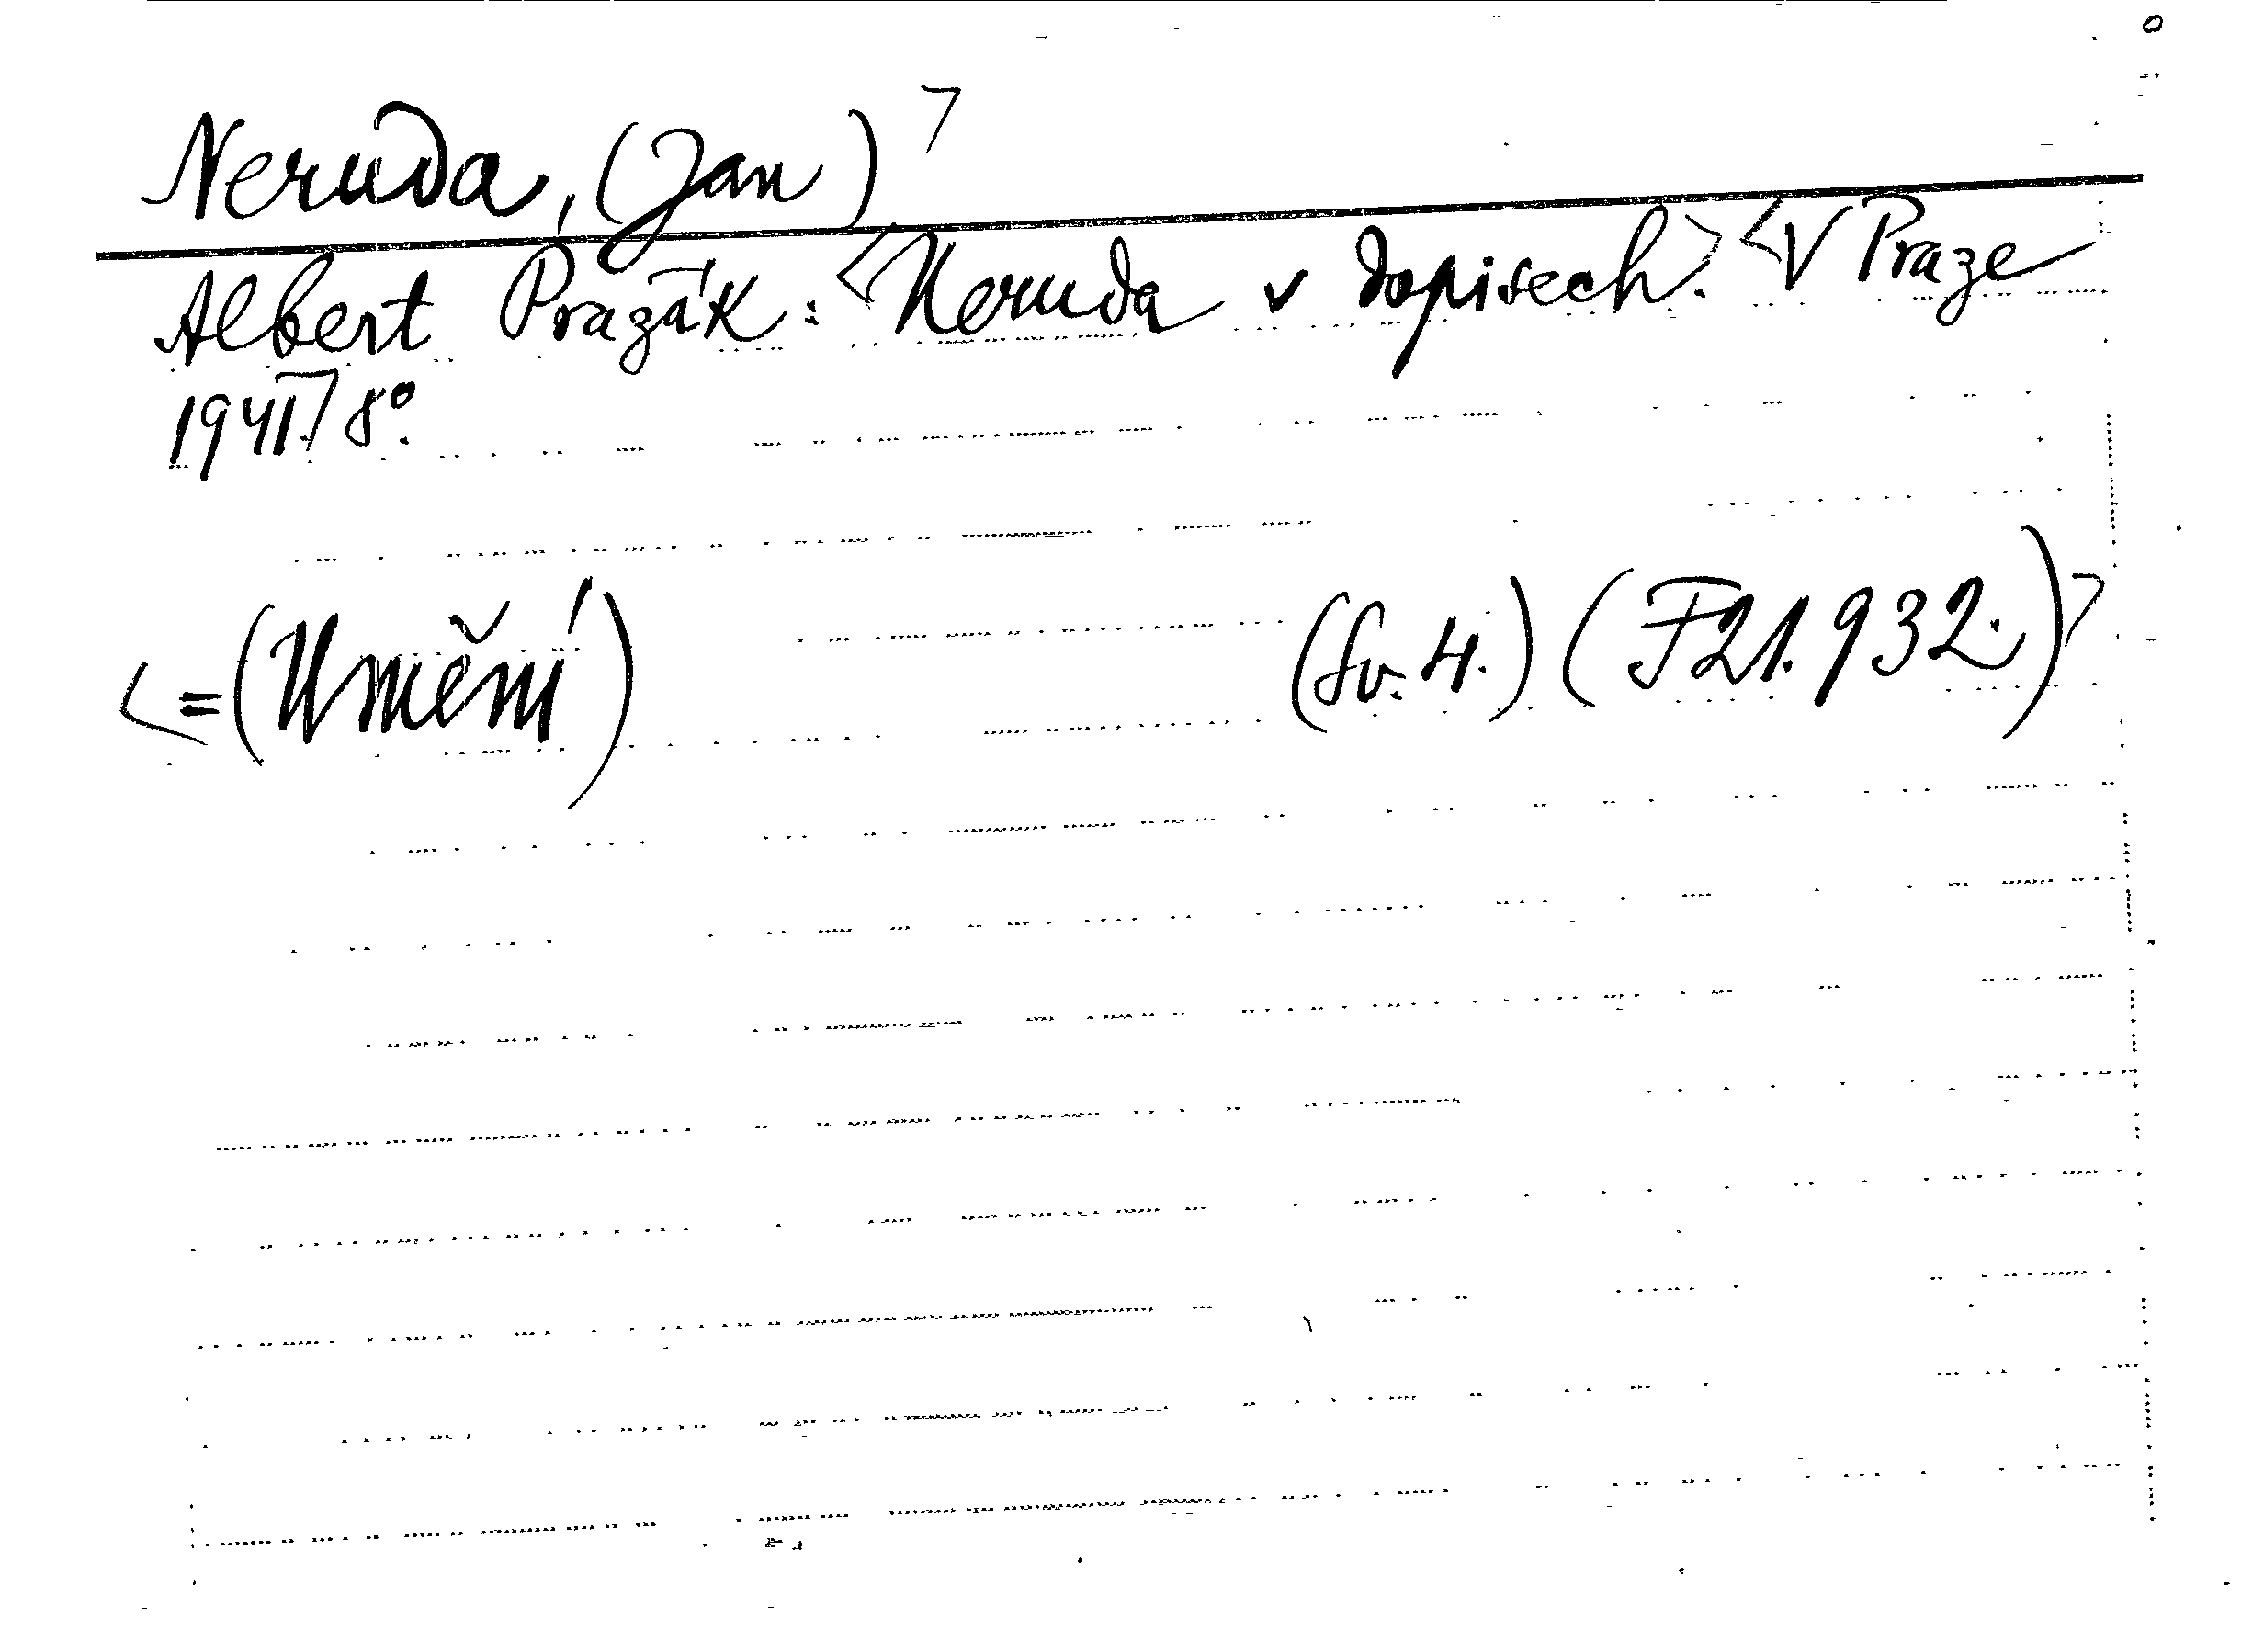 Neruda, (Jan)
Albert Pražák: Neruda v dopisech. V Praze
1941. 8°.
=(Umění) (Sv. 4.) (F21.932.)